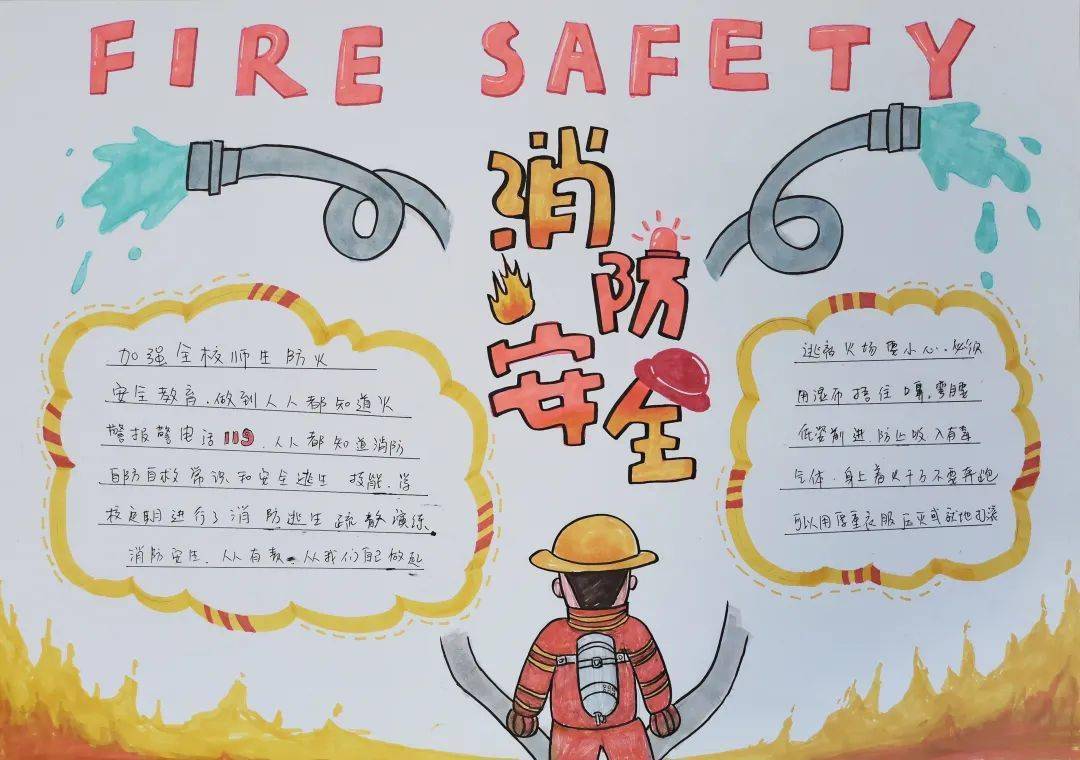 FIRE SAFETY
消
防
安
全
加强全校师生防火
安全教育.做到人人都知道火
警报警电话119.人人都知道消防
自防自救常识和安全逃生技能.学
校定期进行了消防逃生疏散演练.
消防安全.人人有责.从我们自己做起
逃离火场要小心.必须
用湿布捂住口鼻.弯腰
低姿前进.防止吸入有毒
气体.身上着火千万不要奔跑
可以用厚重衣服压灭或就地打滚